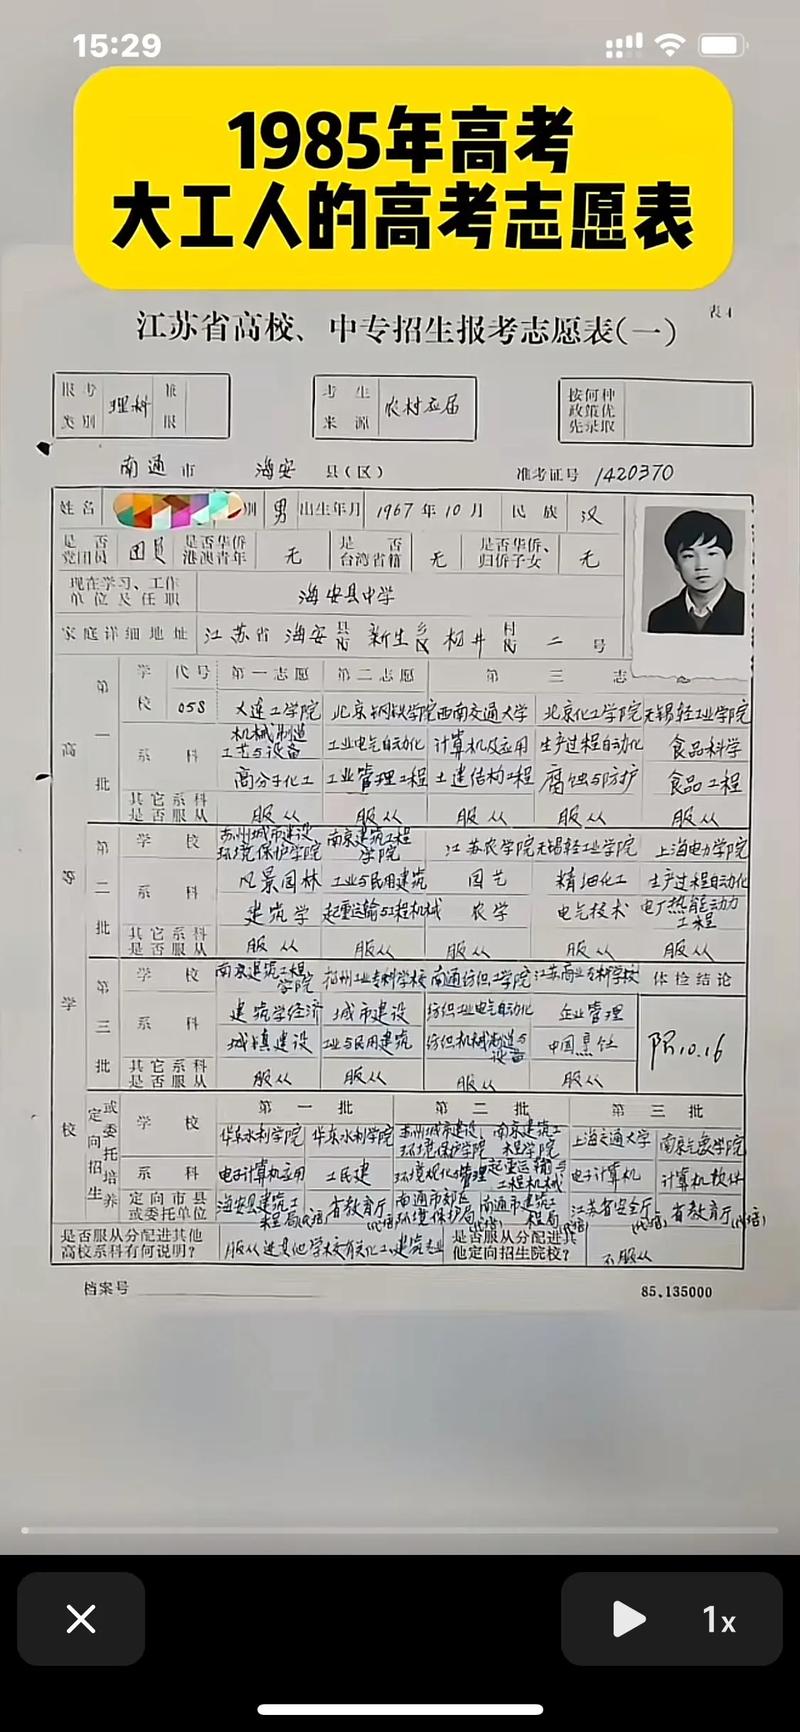 15:29
1985年高考
大工人的高考志愿表
表4
江苏省高校、中专招生报考志愿表(一)
报考类别 理科 准报
考生来源 农村应届
按何种政策优先录取
南通市 海安县(区) 准考证号 1420370
姓名 别 男 出生年月 1967年10月 民族 汉
是否党团员 团员 是否华侨港澳青年 无 是否台湾省籍 无 是否华侨、归侨子女 无
现在学习、工作单位及任职 海安县中学
家庭详细地址 江苏省海安县 新生乡 村 二号
高等学校
第一批
学校 代号 第一志愿 第二志愿 第三志
058 大连工学院 北京钢铁学院 西南交通大学 北京化工学院 无锡轻工业学院
系科 机械制造工艺与设备 工业电气自动化 计算机及应用 生产过程自动化 食品科学
高分子化工 工业管理工程 土建结构工程 腐蚀与防护 食品工程
其它系科是否服从 服从 服从 服从 服从 服从
第二批
学校 苏州城市建设环境保护学院 南京建筑工程学院 江苏农学院 无锡轻工业学院 上海电力学院
系科 风景园林 工业与民用建筑 园艺 精细化工 生产过程自动化
建筑学 起重运输与工程机械 农学 电气技术 电厂热能动力工程
其它系科是否服从 服从 服从 服从 服从 服从
第三批
学校 南京建筑工程学院 扬州工业专科学校 南通纺织工学院 江苏商业专科学校 体检结论
系科 建筑学经济 城市建设 纺织工业电气自动化 企业管理
城镇建设 工业与民用建筑 纺织机械制造与设备 中国烹饪
10.16
其它系科是否服从 服从 服从 服从 服从
定向招生或委托培养
第一批 第二批 第三批
学校 华东水利学院 华东水利学院 苏州城市建设环境保护学院 南京建筑工程学院 上海交通大学 南京气象学院
系科 电子计算机应用 工民建 环境规化与管理 起重运输与工程机械 电子计算机 计算机软件
定向市县或委托单位 海安县建筑工程局(代培) 省教育厅(代培) 南通市郊区环境保护局(代培) 南通市建筑工程局 江苏省安全厅(代培) 省教育厅(代培)
是否服从分配进其他高校系科有何说明? 服从进其他学校有关化工、建筑专业
是否服从分配进其他定向招生院校? 不服从
档案号
85.135000
1x